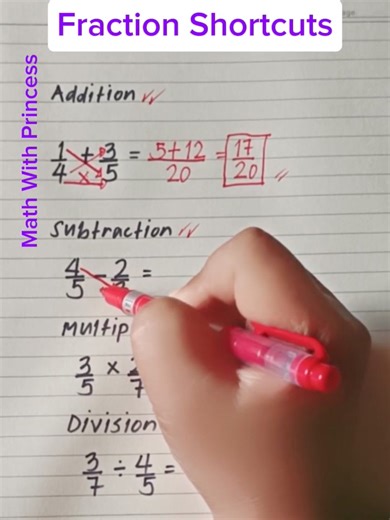 Fraction Shortcuts
Math With Princess
Addition
1/4 + 3/5 = 5+12/20 = 17/20
Subtraction
4/5 - 2/ =
Multip
3/5 × /7
Division
3/7 ÷ 4/5 =